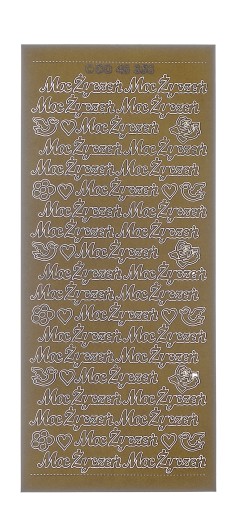 Moc Życzeń Moc Życzeń
Moc Życzeń Moc Życzeń
Moc Życzeń
Moc Życzeń Moc Życzeń
Moc Życzeń Moc Życzeń
Moc Życzeń
Moc Życzeń Moc Życzeń
Moc Życzeń Moc Życzeń
Moc Życzeń
Moc Życzeń Moc Życzeń
Moc Życzeń Moc Życzeń
Moc Życzeń
Moc Życzeń Moc Życzeń
Moc Życzeń Moc Życzeń
Moc Życzeń
Moc Życzeń Moc Życzeń
Moc Życzeń Moc Życzeń
Moc Życzeń
Moc Życzeń Moc Życzeń